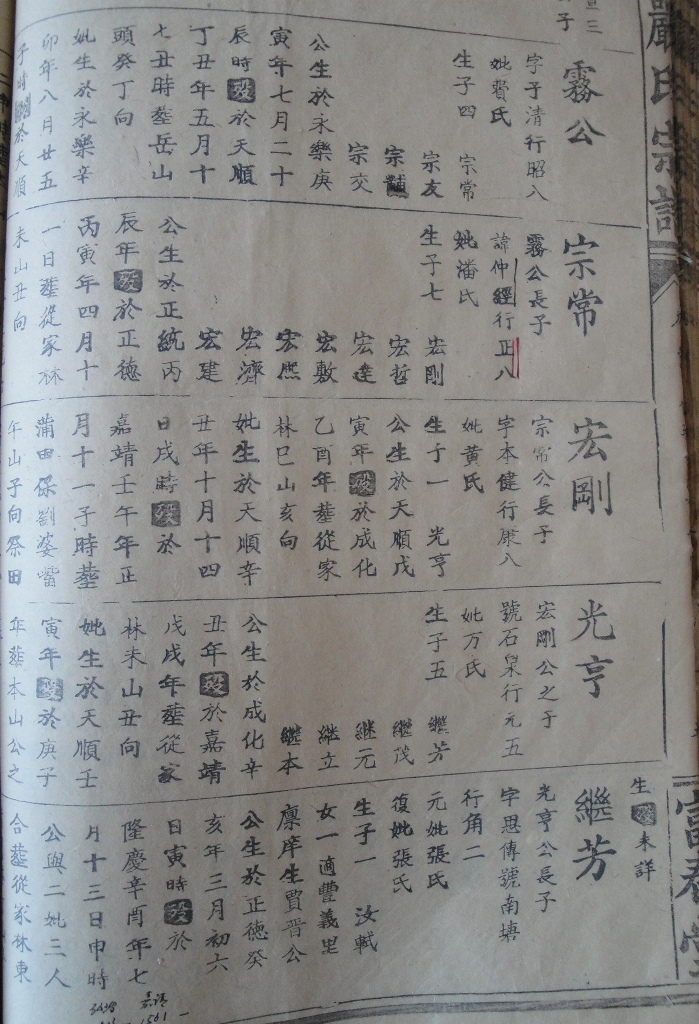 嚴氏宗譜
霧公
字子清行昭八
妣費氏
生子四 宗常
宗友
宗輔
宗交
公生於永樂庚
寅年七月二十
辰時歿於天順
丁丑年五月十
七丑時葬岳山
頭癸丁向
妣生於永樂辛
卯年八月廿五
子時歿於天順
宗常
霧公長子
諱仲經行正八
妣潘氏
生子七 宏剛
宏哲
宏達
宏敷
宏熙
宏濟
宏建
公生於正統丙
辰年歿於正德
丙寅年四月十
一日葬從家林
未山丑向
宏剛
宗常公長子
字本健行廉八
妣黄氏
生子一 光亨
公生於天順戊
寅年歿於成化
乙酉年葬從家
林巳山亥向
妣生於天順辛
丑年十月十四
日戌時歿於
嘉靖壬午年正
月十一子時葬
蒲田保劉婆嘴
午山子向祭田
光亨
宏剛公之子
號石泉行元五
妣万氏
生子五 繼芳
繼茂
継元
継立
繼本
公生於成化辛
丑年歿於嘉靖
戊戌年葬從家
林未山丑向
妣生於天順壬
寅年歿於庚子
年葬本山公之
生歿未詳
繼芳
光亨公長子
字思傳號南塘
行角二
元妣張氏
復妣張氏
生子一 汝軾
女一適豐義里
廪庠生賈晋公
公生於正德癸
亥年三月初六
日寅時歿於
隆慶辛酉年七
月十三日申時
公與二妣三人
合葬從家林東
富春堂